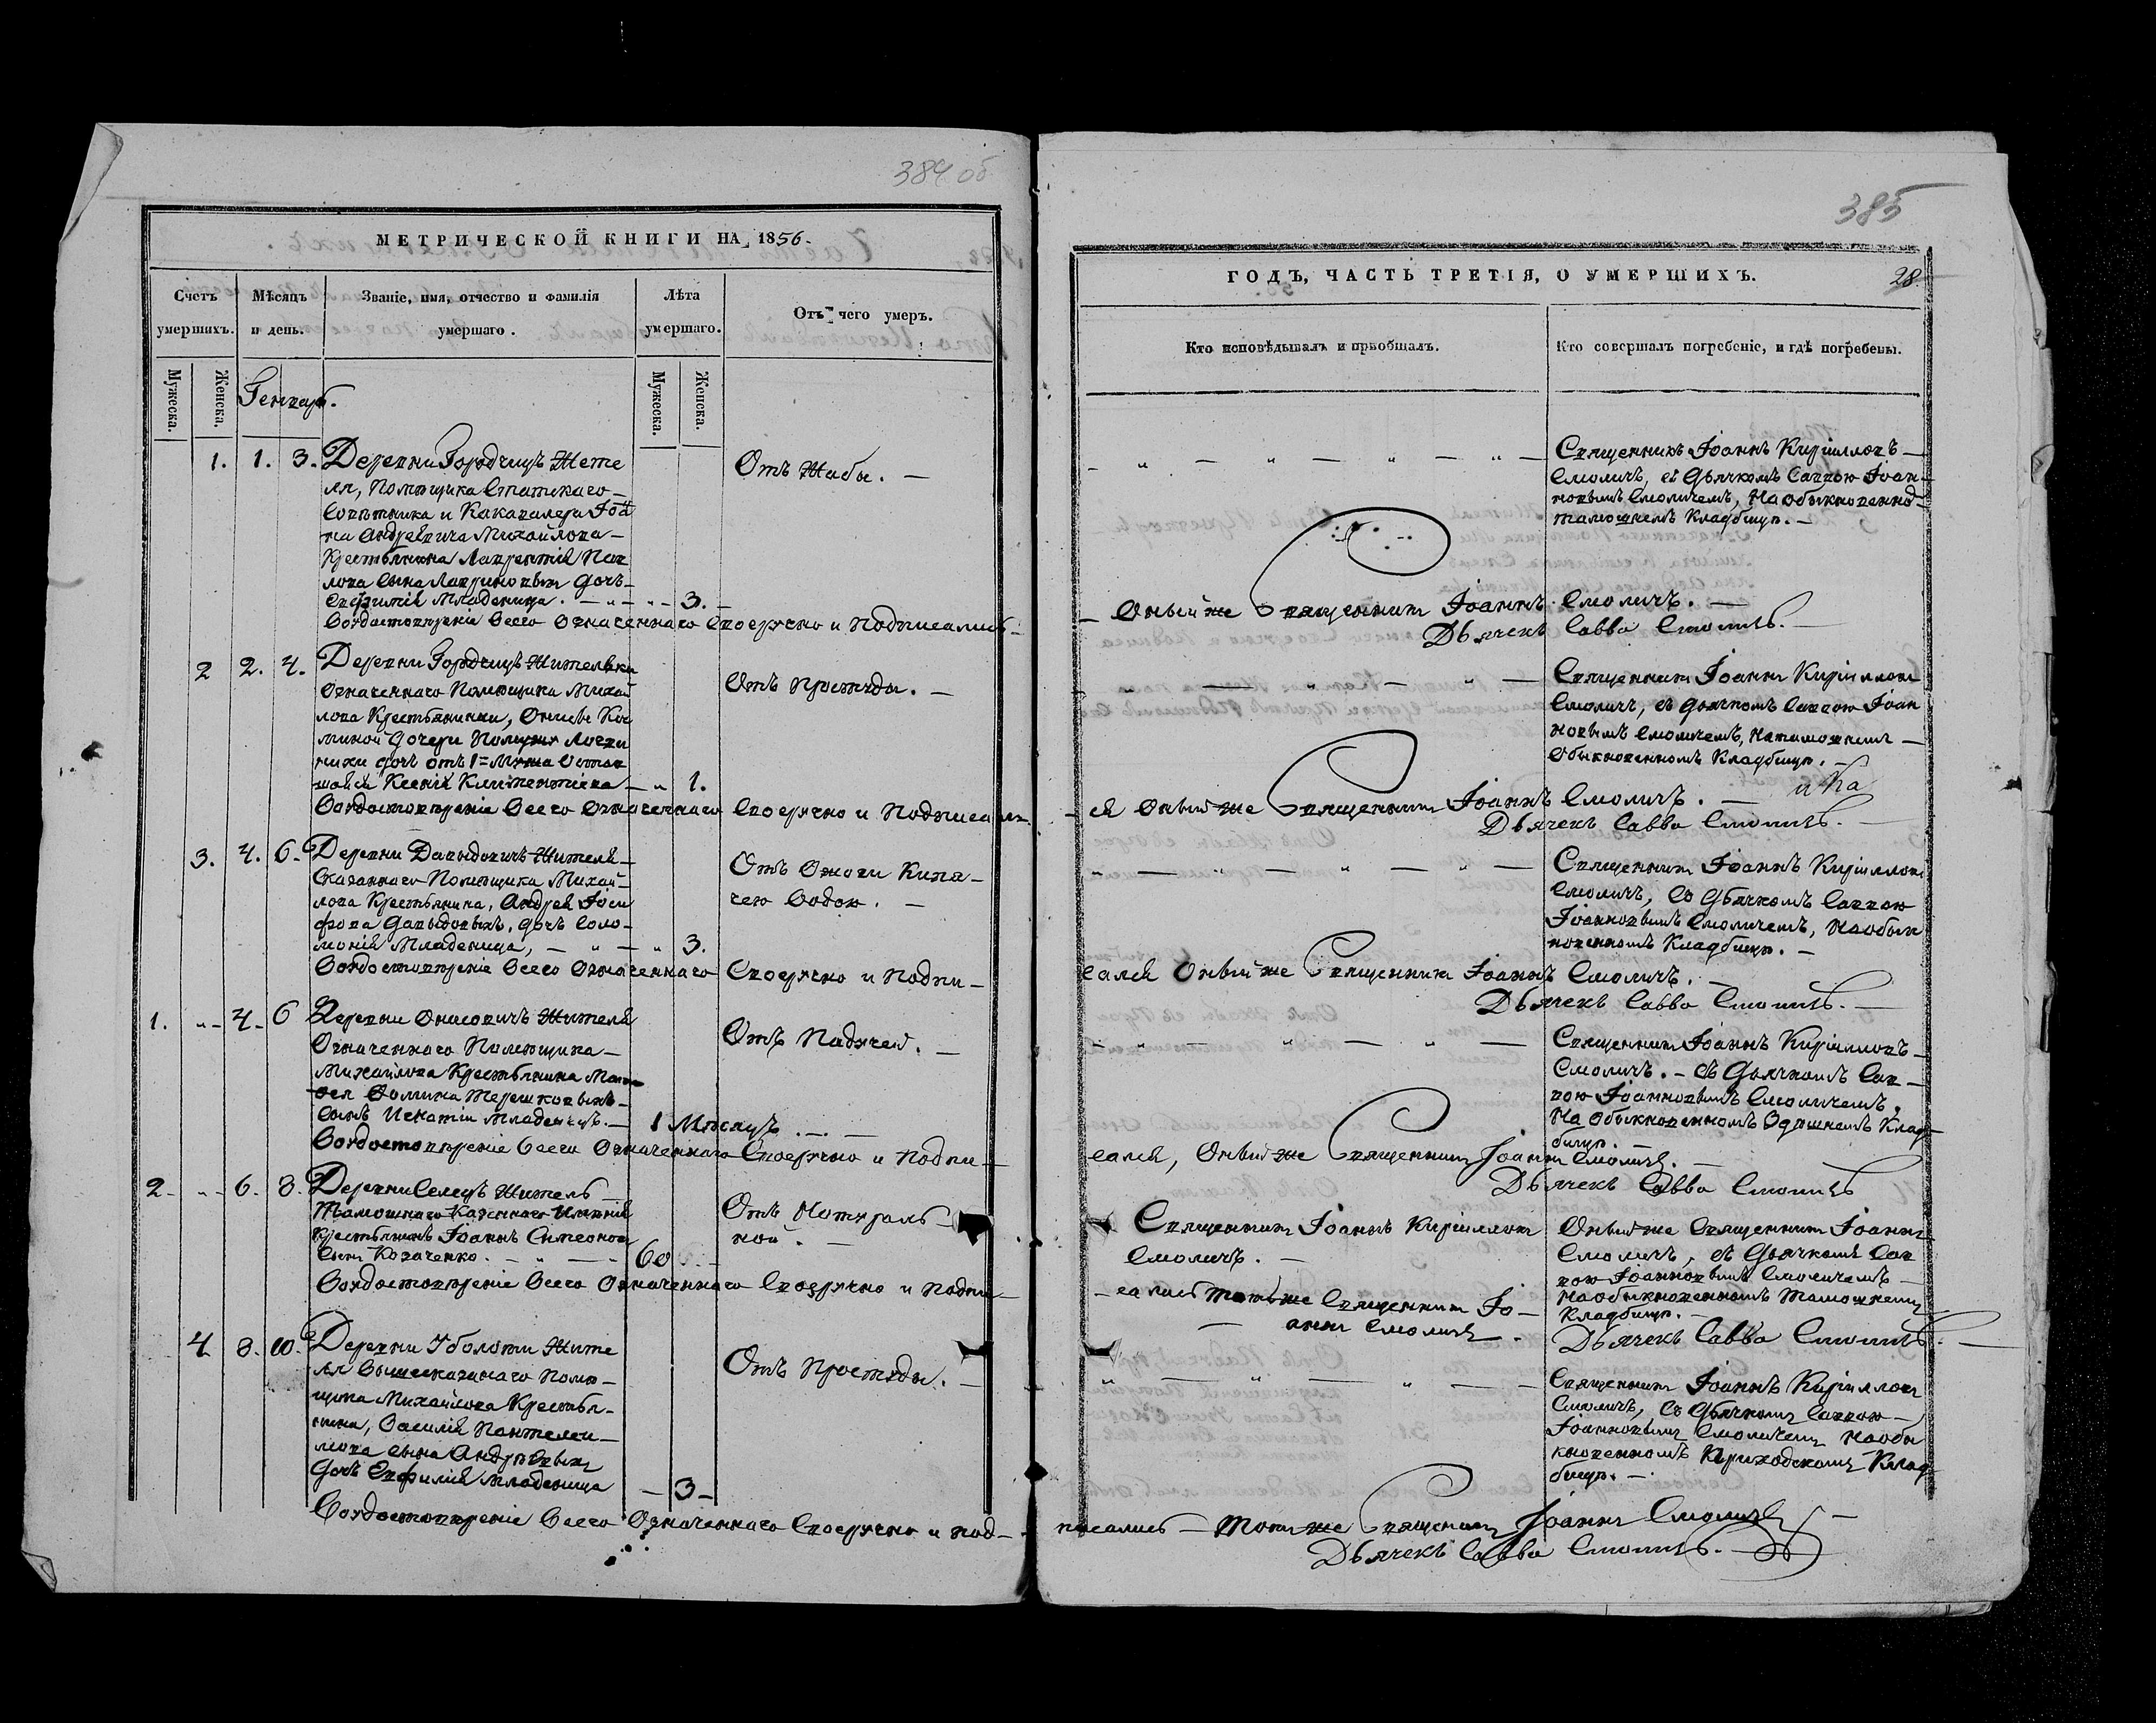 384 об
МЕТРИЧЕСКОЙ КНИГИ НА 1856.
Счетъ умершихъ.
Мѣсяцъ и день.
Званіе, имя, отчество и фамилія умершаго.
Лѣта умершаго.
Отъ чего умеръ.
Мужеска.
Женска.
Генварь.
Мужеска.
Женска.
1. 1. 3. Деревни Городчицъ Жите
ля, Помѣщика Статскаго
Совѣтника и Кавалера Іоа
на Андреевича Михайлова
Крестьянина Лаврентія Пав
лова сына дочь
Евфимія Младеница. 3.
Отъ Жабы.
Вѣрдостовѣреніе Всего Означеннаго Своеручно и Подписались
2 2. 4. Деревни Городчицъ Жителька
Означеннаго Помѣщика Михай
лова Крестьянинки,
дочери
дочь отъ 1 Мужа Остав
шаяся Ксенія 1.
Отъ Простуды.
Означеннаго Своеручно и Подписали
3. 4. 6. Деревни Давыдовичъ Жителя
Сказаннаго Помѣщика Михай
лова Крестьянина, Андрея Іоси
фова Давыдовыхъ, дочь Соло
монія Младеница, 3.
Отъ Ожоги Кипя
чею Водою.
Всего Означеннаго Своеручно и Подпи
1. 4. 6 Деревни Онисовичъ Жителя
Означеннаго Помѣщика
Михайлова Крестьянина Мат
фея Фомина Терешковыхъ
сынъ Игнатій Младенецъ. 1 Мѣсяцъ
Отъ Падучей.
Всего Означеннаго Своеручно и Подпи
2. 6. 8. Деревни Селецъ Житель
Тамошнаго Казеннаго Имѣнія
Крестьянинъ Іоаннъ Симеонов
сынъ Козаченко. 60
Отъ Натураль
ной.
Всего Означеннаго Своеручно и Подпи
4 8. 10. Деревни Уболоти Жите
ля Вышесказанаго Помѣ
щика Михайлова Крестья
нина, Василія Пантелеи
мова сына
дочь Евфимія Младеница 3
Отъ Простуды.
Всего Означеннаго Своеручно и под
385
ГОДЪ, ЧАСТЬ ТРЕТІЯ, О УМЕРШИХЪ. 28.
Кто исповѣдывалъ и пріобщалъ.
Кто совершалъ погребеніе, и гдѣ погребены.
Священникъ Іоаннъ Кирилловъ
Смоличъ, съ Дьячкомъ Саввою Іоан
новымъ Смоличемъ, На обыкновенно
тамошнемъ Кладбищѣ.
Оный же Священникъ Іоаннъ Смоличъ.
Дьячекъ Савва Смоличъ.
Священникъ Іоаннъ Кирилловъ
Смоличъ, съ Дьячкомъ Саввою Іоан
новымъ Смоличемъ, На тамошнемъ
обыкновенномъ Кладбищѣ.
ся Оный же Священникъ Іоаннъ Смоличъ.
Дьячекъ Савва Смоличъ.
Священникъ Іоаннъ Кирилловъ
Смоличъ, Съ Дьячкомъ Саввою
Іоанновымъ Смоличемъ, На обык
новенномъ Кладбищѣ.
сался Оный же Священникъ Іоаннъ Смоличъ.
Дьячекъ Савва Смоличъ.
Священникъ Іоаннъ Кирилловъ
Смоличъ. съ Дьячкомъ Сав
вою Іоанновымъ Смоличемъ,
На Обыкновенномъ Клад
бищѣ.
сался, Оный же Священникъ Іоаннъ Смоличъ.
Дьячекъ Савва Смоличъ
Священникъ Іоаннъ Кирилловъ
Смоличъ.
Оный же Священникъ Іоаннъ
Смоличъ, съ Дьячкомъ Сав
вою Іоанновымъ Смоличемъ
На обыкновенномъ Тамошнемъ
Кладбищѣ.
сались тотъ же Священникъ Іо
аннъ Смоличъ.
Дьячекъ Савва Смоличъ.
Священникъ Іоаннъ Кирилловъ
Смоличъ, Съ Дьячкомъ Саввою
Іоанновымъ Смоличемъ На обы
кновенномъ Приходскомъ Клад
бищѣ.
писались Тотъ же Священникъ Іоаннъ Смоличъ
Дьячекъ Савва Смоличъ.